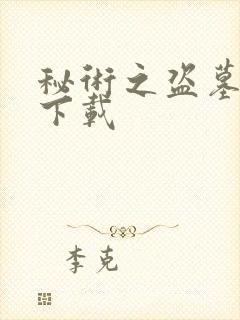 秘術之盗墓
下載
李克